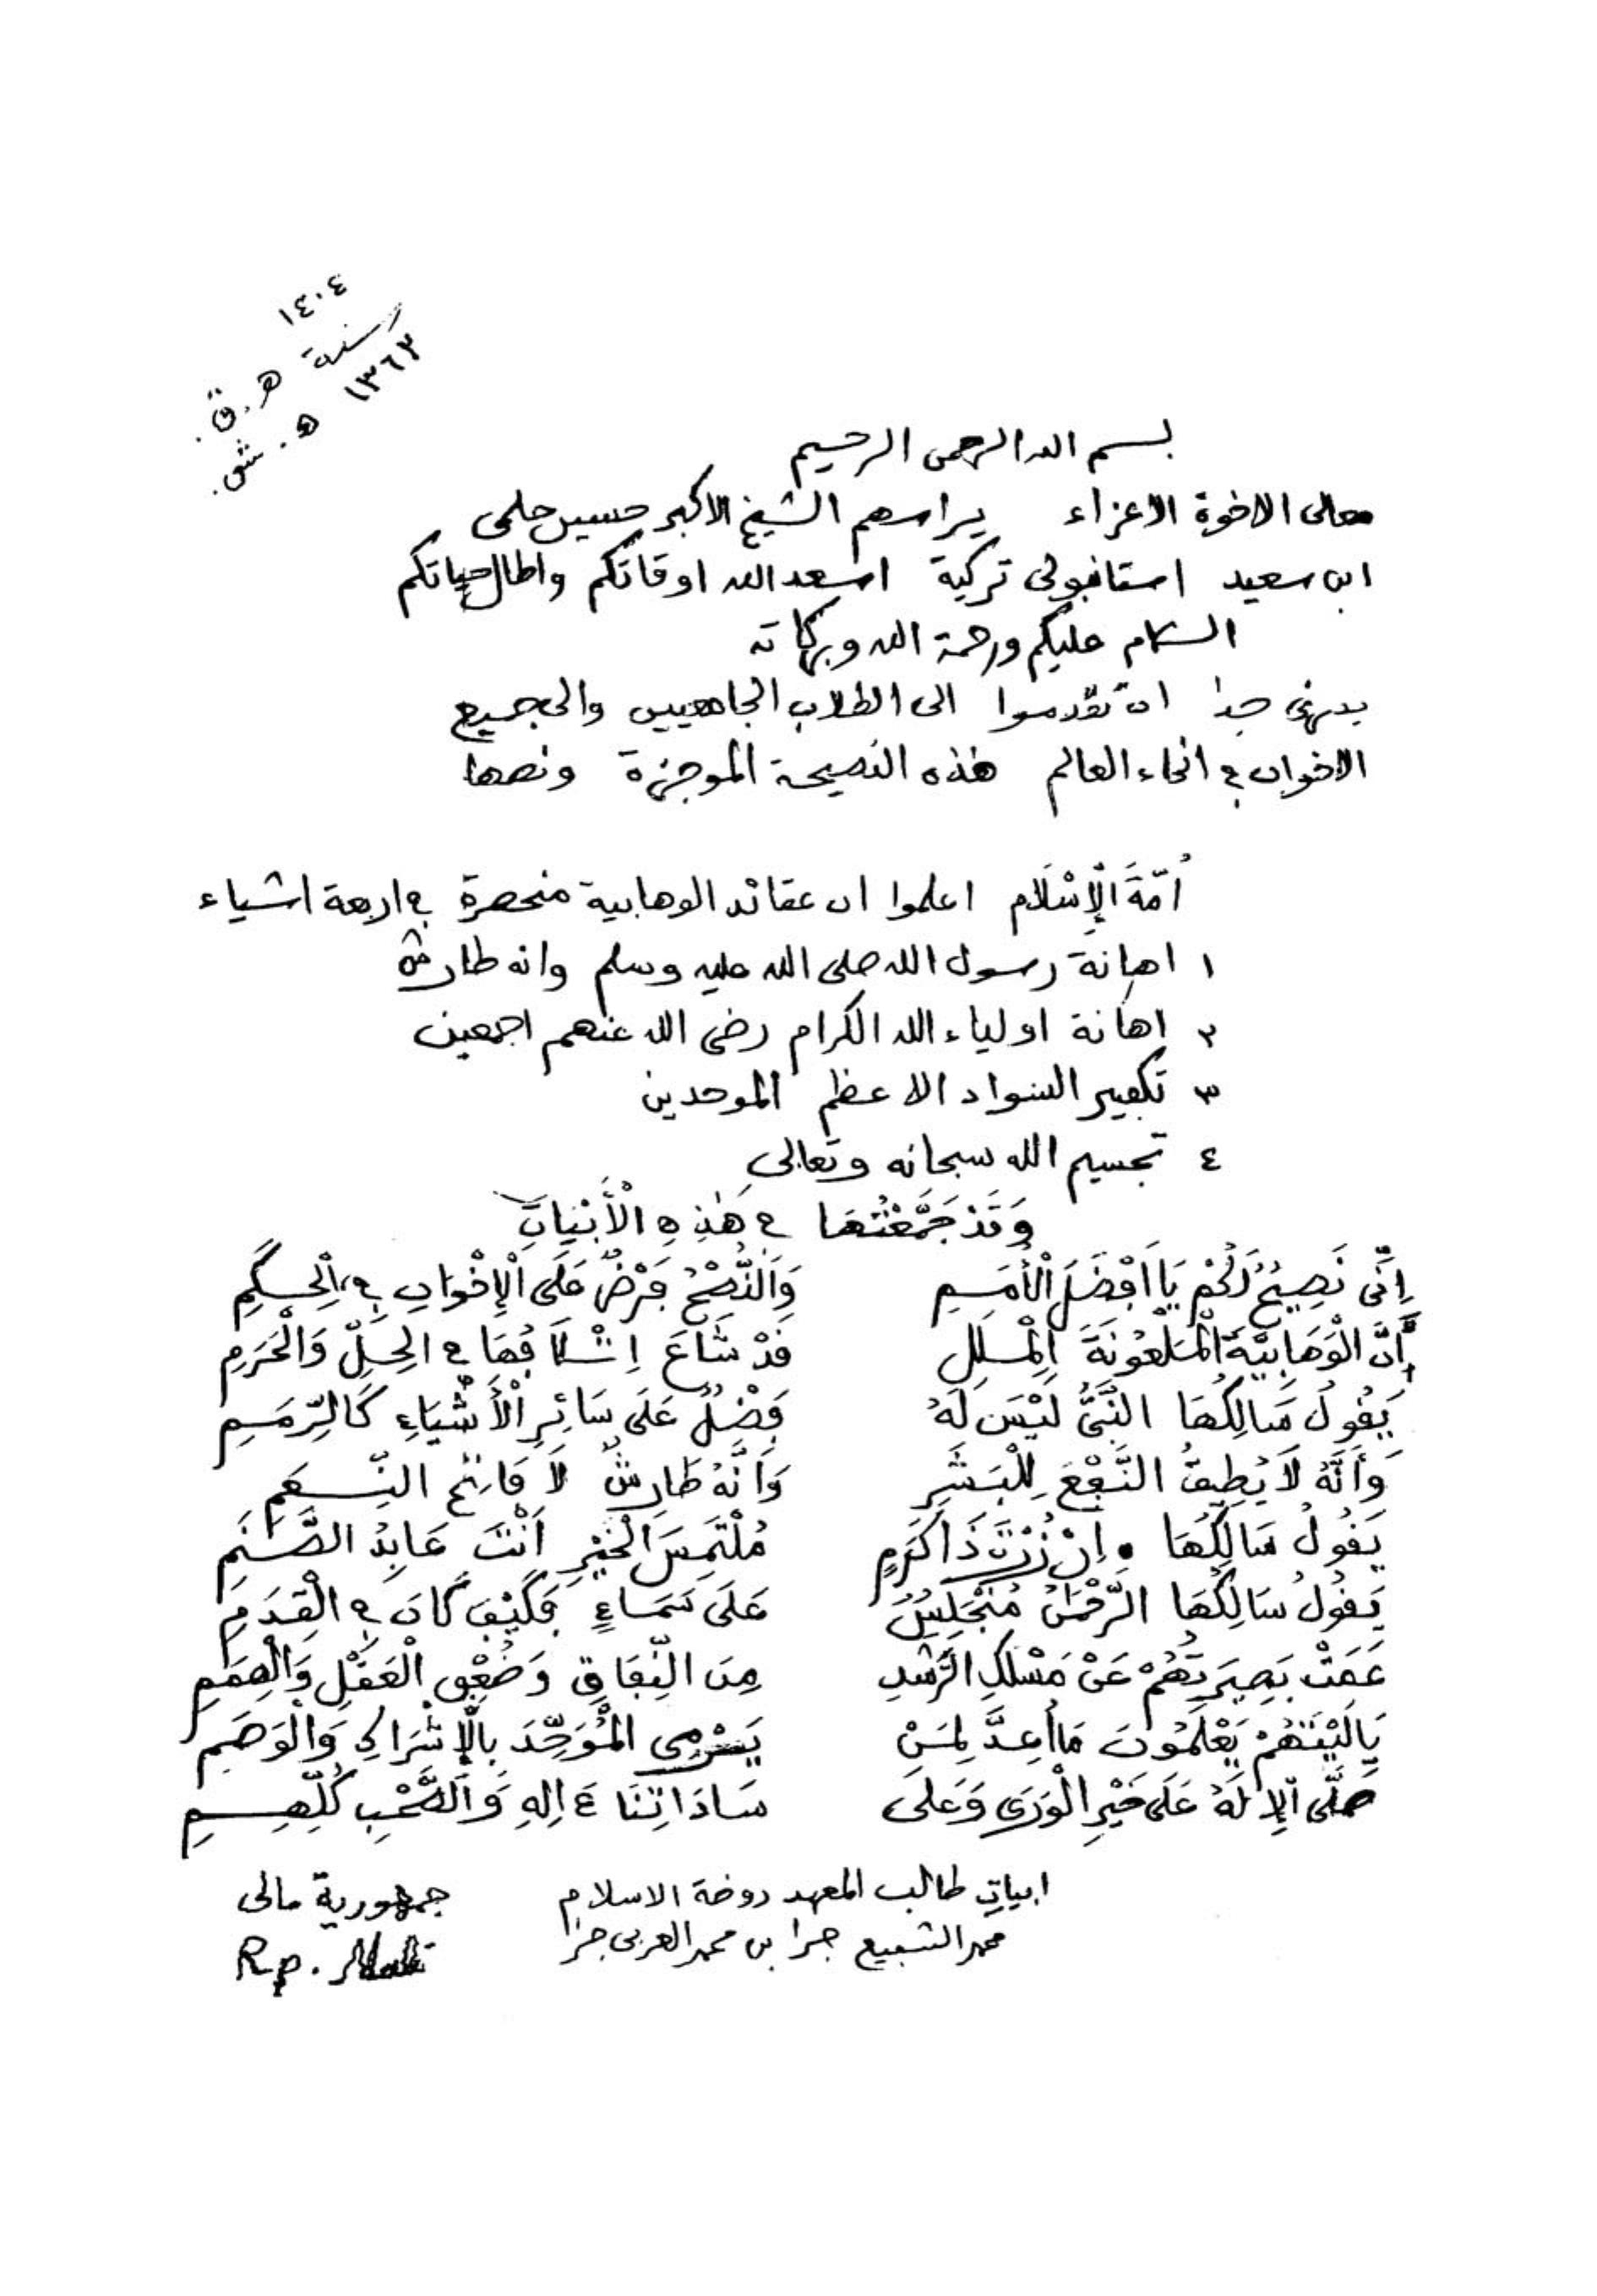 ١٤٠٤
سنة ه.ق.
١٣٦٣ ه.ش.
بسم الله الرحمن الرحيم
معالى الاخوة الاعزاء يراسهم الشيخ الاكبر حسين حلمى
ابن سعيد استانبولى تركية اسعد الله اوقاتكم واطال حياتكم
السلام عليكم ورحمة الله وبركاته
جدا ان تقدموا الى الطلاب الجامعيين والى جميع
الاخوان في انحاء العالم هذه النصيحة الموجزة ونصها
أُمَّةَ الْإِسْلَام اعلموا ان عقائد الوهابية منحصرة في اربعة اشياء
١ اهانة رسول الله صلى الله عليه وسلم وانه طارش
٢ اهانة اولياء الله الكرام رضى الله عنهم اجمعين
٣ تكفير السواد الاعظم الموحدين
٤ تجسيم الله سبحانه وتعالى
وَقَدْ جَمَّعْتُهَا في هٰذِهِ الْأَبْيَاتِ
إِنِّى نَصِيحٌ لَكُمْ يَا اَفْضَلَ الْأُمَمِ وَالنُّصْحُ فَرْضٌ عَلَى الْإِخْوَانِ في الْحِكَمِ
إِنَّ الْوَهَابِيَّةَ الْمَلْعُونَةَ الْمِلَلِ قَدْ شَاعَ اِشْلَاقُهَا في الحِلِّ وَالْحَرَمِ
يَقُولُ سَالِكُهَا النَّبِىُّ لَيْسَ لَهُ فَضْلٌ عَلَى سَائِرِ الْأَشْيَاءِ كَالرِّمَمِ
وَأَنَّهُ لَا يُطِيقُ النَّفْعَ لِلْبَشَرِ وَاَنَّهُ طَارِشٌ لَا مَانِحُ النِّعَمِ
يَقُولُ سَالِكُهَا إِنْ زُرْتَ ذَا كَرَمٍ مُلْتَمِسَ الْخَيْرِ اَنْتَ عَابِدُ الصَّنَمِ
يَقُولُ سَالِكُهَا الرَّحْمٰنُ مُنْجَلِسٌ عَلَى سَمَاءٍ فَكَيْفَ كَانَ في الْقِدَمِ
عَمَتْ بَصِيرَتُهُمْ عَنْ مَسْلَكِ الرَّشَدِ مِنَ النِّفَاقِ وَضُعْفِ الْعَقْلِ وَالْهِمَمِ
يَا لَيْتَهُمْ يَعْلَمُونَ مَا اُعِدَّ لِمَنْ يَرْمِى الْمُوَحِّدَ بِالْإِشْرَاكِ وَالْوَصَمِ
صَلَّى الْإِلَهُ عَلَى خَيْرِ الْوَرَى وَعَلَى سَادَاتِنَا ءَالِهِ وَالصَّحْبِ كُلِّهِمِ
ابيات طالب المعهد روضة الاسلام جمهورية مالى
محمد الشفيع جرا بن محمد العربى جرا Rp. Mali